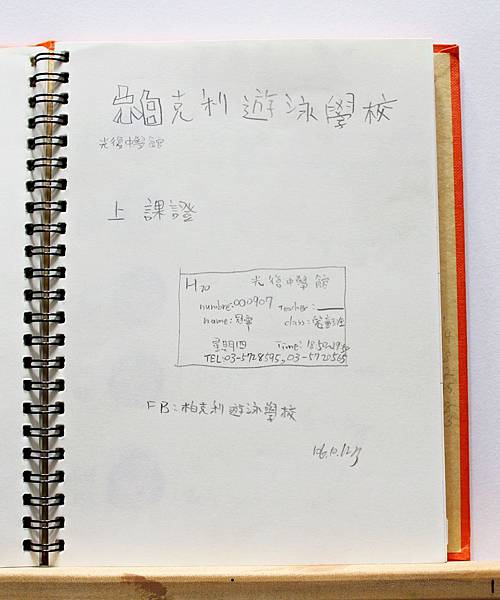 克利遊泳學校
光復中學館
上課證
H20 光復中學館
numbre:000907 Teacher:
name: class:
星期四 Time: 18:50~19:50
TEL:03-5728595,03-5720565
FB:柏克利遊泳學校
106.10.12